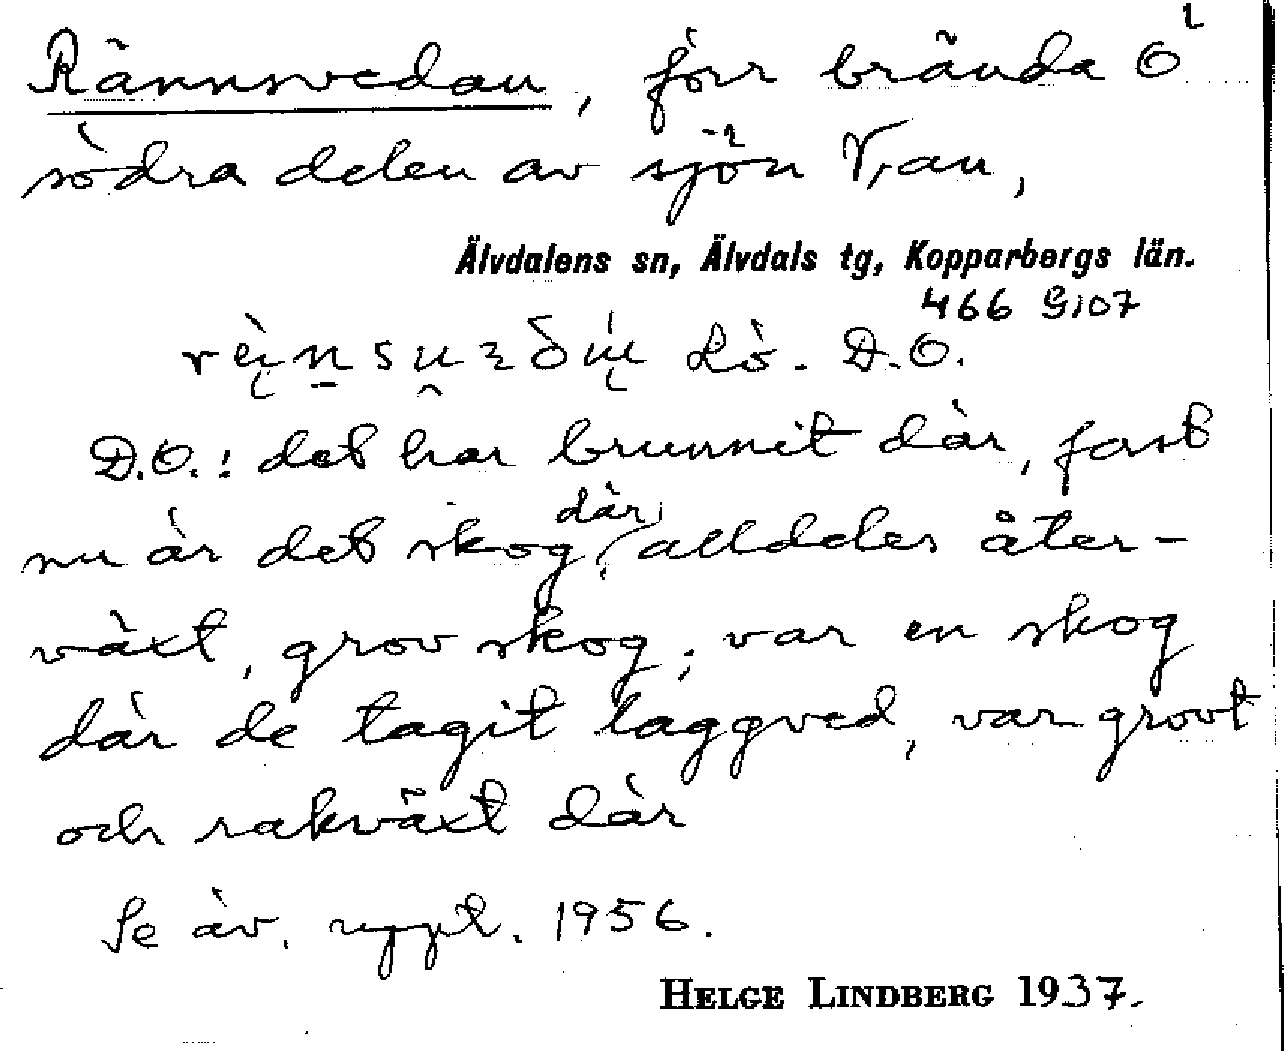 Rännsvedan, förr brända Ö
södra delen av sjön V,an,
Älvdalens sn, Älvdals tg, Kopparbergs län.
466 G107
Lö. D.O.
D.O.: det har brunnit där, fast
nu är det skog där, alldeles åter-
växt, grov skog; var en skog
där de tagit laggved, var grovt
och rakväxt där
Se äv. uppt. 1956.
HELGE LINDBERG 1937.